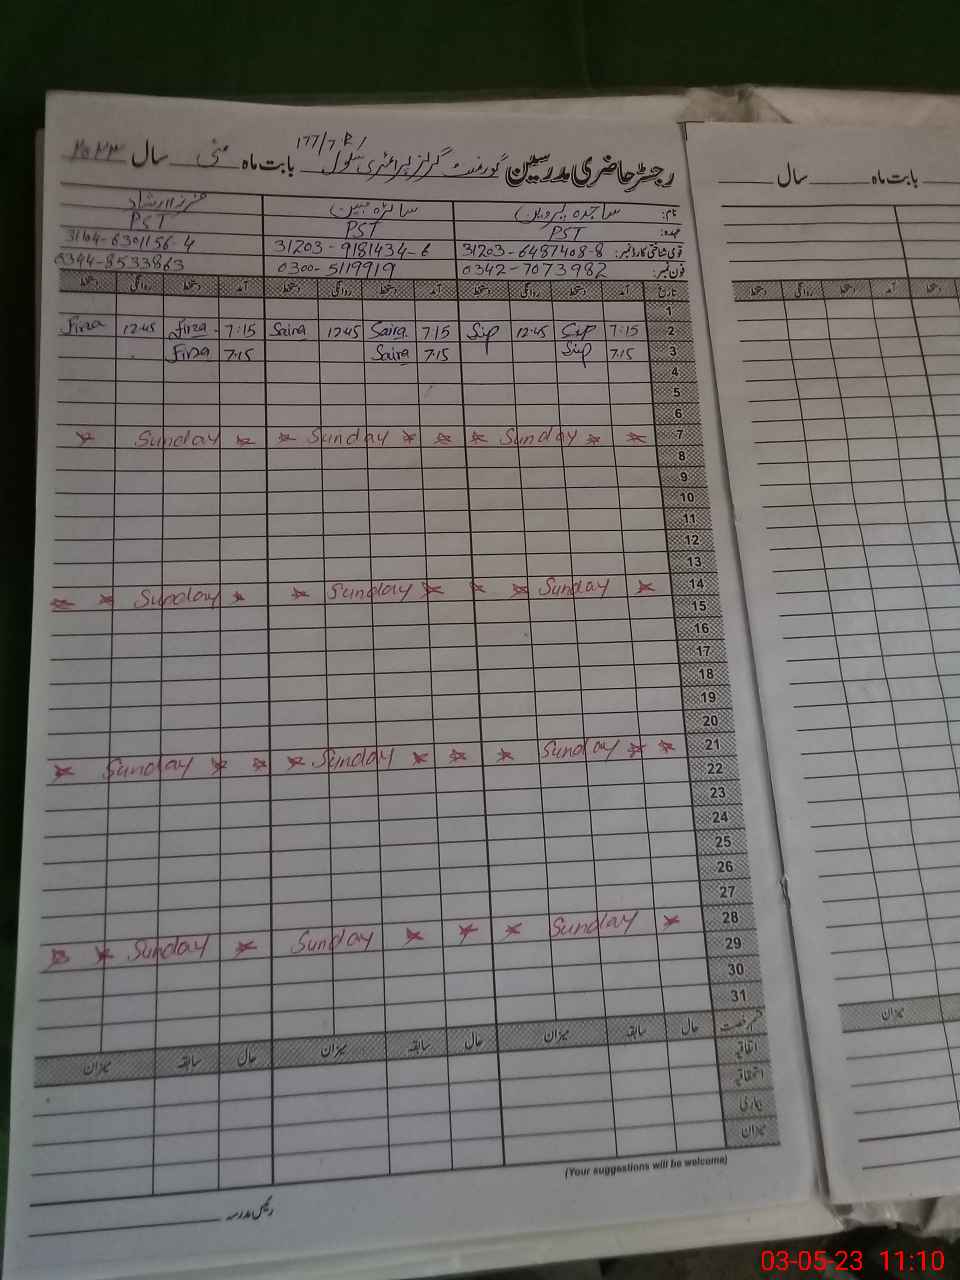 177/7R/
رجسٹر حاضری مدرسین گورنمنٹ گرلز پرائمری سکول بابت ماہ مئی سال ۲۰۲۳
نام: ساجدہ پروین سائرہ مبین
عہدہ: PST PST PST
قومی شناختی کارڈ نمبر: 31203-6487408-8 31203-9181434-6 31104-6301156-4
فون نمبر: 0342-7073982 0300-5119919 0344-8533863
تاریخ آمد دستخط روانگی دستخط آمد دستخط روانگی دستخط آمد دستخط روانگی دستخط
1
Firza 12:45 firza 7:15 Saira 12:45 Saira 7:15 Sip 12:45 Sip 7:15 2
Firza 7:15 Saira 7:15 Sip 7:15 3
4
5
6
Sunday Sunday Sunday 7
8
9
10
11
12
13
Sunday Sunday Sunday 14
15
16
17
18
19
20
Sunday Sunday Sunday 21
22
23
24
25
26
27
Sunday Sunday Sunday 28
29
30
31
قسم رخصت حال سابقہ میزان حال سابقہ میزان حال سابقہ میزان
اتفاقیہ
استحقاقیہ
بیماری
میزان
(Your suggestions will be welcome)
رئیس مدرسہ
بابت ماہ سال
دستخط آمد دستخط روانگی دستخط
میزان
03-05-23 11:10